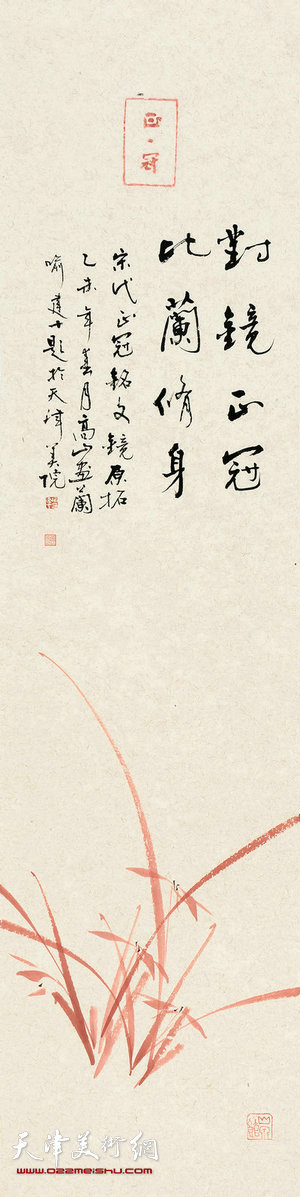 正冠
對鏡正冠
比蘭修身
宋代正冠銘文鏡原拓
乙未年春月高山畫蘭
喻建十題於天津美院
天津美術網
www.022meishu.com